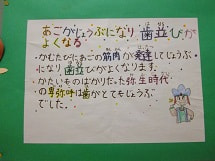 あごがじょうぶになり 歯並びが
よくなる
・かむたびにあごの筋肉が発達してじょうぶ
になり 歯並びがよくなります。
かたいものばかりだった弥生時代
の卑弥呼は歯がとてもじょうぶ
でした。